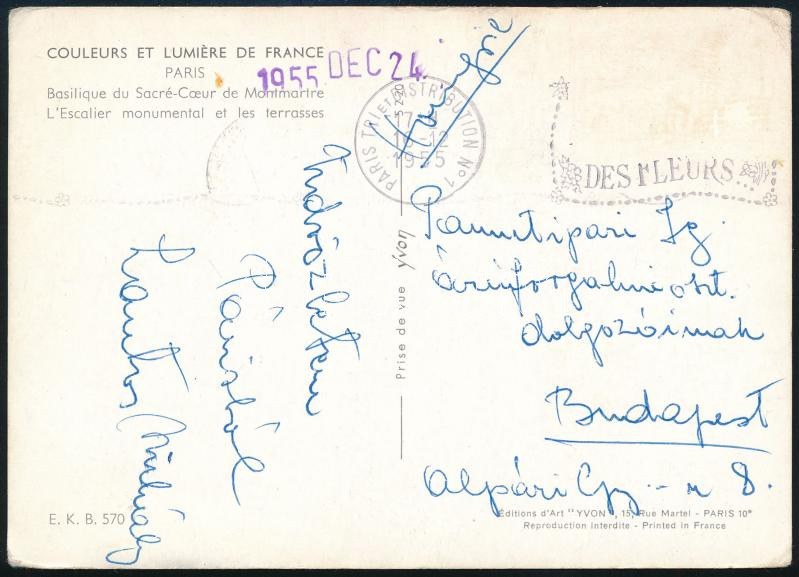 COULEURS ET LUMIÈRE DE FRANCE
PARIS
Basilique du Sacré-Cœur de Montmartre
L'Escalier monumental et les terrasses
1955 DEC 24.
PARIS TRI et DISTRIBUTION No 1
16-12
1955
DES FLEURS...
Üdvözletem
Párisból
Lantos Mihály
Prise de vue Yvon
Pamutipari Ig.
Áruforgalmi oszt.
dolgozóinak
Budapest
Alpári Gy. u 8.
E. K. B. 570
Éditions d'Art "YVON", 15, Rue Martel - PARIS 10e
Reproduction Interdite - Printed in France